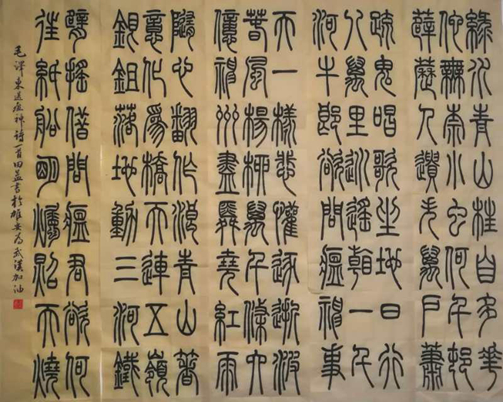 綠水青山枉自多華
佗無奈小虫何千邨
薜荔人遺矢萬戶蕭
疏鬼唱歌坐地日行
八萬里巡遙朝一千
河牛郎欲問瘟神事
天一樣悲懽逐逝波
春風楊柳萬千條六
億神州盡舜堯紅雨
隨心翻作浪青山著
意化爲橋天連五嶺
銀鉏落地動三河鐵
臂搖借問瘟君欲何
往紙船明燭照天燒
毛澤東送瘟神詩一首田益書於雄安為武漢加油